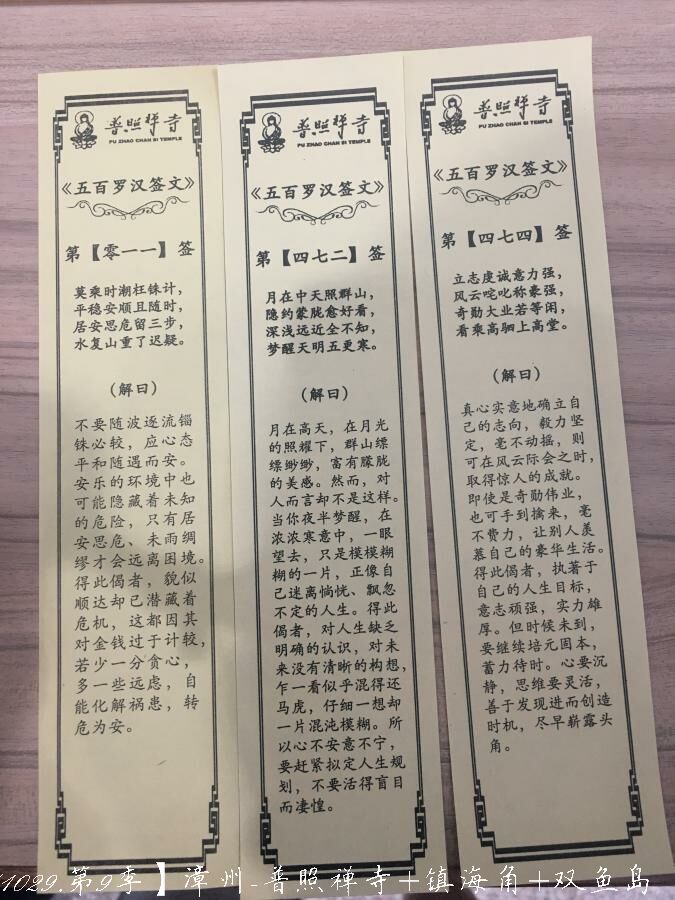 普照禅寺
PU ZHAO CHAN SI TEMPLE
《五百罗汉签文》
第【零一一】签
莫乘时潮枉铢计，
平稳安顺且随时，
居安思危留三步，
水复山重了迟疑。
（解曰）
不要随波逐流锱
铢必较，应心态
平和随遇而安。
安乐的环境中也
可能隐藏着未知
的危险，只有居
安思危、未雨绸
缪才会远离困境。
得此偈者，貌似
顺达却已潜藏着
危机，这都因其
对金钱过于计较，
若少一分贪心，
多一些远虑，自
能化解祸患，转
危为安。
普照禅寺
PU ZHAO CHAN SI TEMPLE
《五百罗汉签文》
第【四七二】签
月在中天照群山，
隐约蒙胧愈好看，
深浅远近全不知，
梦醒天明五更寒。
（解曰）
月在高天，在月光
的照耀下，群山缥
缥缈缈，富有朦胧
的美感。然而，对
人而言却不是这样。
当你夜半梦醒，在
浓浓寒意中，一眼
望去，只是模模糊
糊的一片，正像自
己迷离惝恍、飘忽
不定的人生。得此
偈者，对人生缺乏
明确的认识，对未
来没有清晰的构想，
乍一看似乎混得还
马虎，仔细一想却
一片混沌模糊。所
以心不安意不宁，
要赶紧拟定人生规
划，不要活得盲目
而凄惶。
普照禅寺
PU ZHAO CHAN SI TEMPLE
《五百罗汉签文》
第【四七四】签
立志虔诚意力强，
风云咤叱称豪强，
奇勋大业若等闲，
看乘高驷上高堂。
（解曰）
真心实意地确立自
己的志向，毅力坚
定，毫不动摇，则
可在风云际会之时，
取得惊人的成就。
即使是奇勋伟业，
也可手到擒来，毫
不费力，让别人羡
慕自己的豪华生活。
得此偈者，执著于
自己的人生目标，
意志顽强，实力雄
厚。但时候未到，
要继续培元固本，
蓄力待时。心要沉
静，思维要灵活，
善于发现进而创造
时机，尽早崭露头
角。
1029.第9季】漳州-普照禅寺+镇海角+双鱼岛